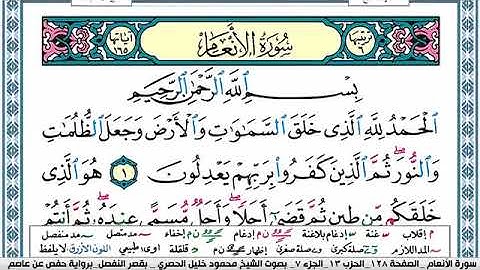 ترتيبها ٦
سُورَةُ الأَنْعَامِ
آياتها ١٦٥
بِسْمِ ٱللَّهِ ٱلرَّحْمَٰنِ ٱلرَّحِيمِ
ٱلْحَمْدُ لِلَّهِ ٱلَّذِى خَلَقَ ٱلسَّمَٰوَٰتِ وَٱلْأَرْضَ وَجَعَلَ ٱلظُّلُمَٰتِ
وَٱلنُّورَ ۖ ثُمَّ ٱلَّذِينَ كَفَرُوا۟ بِرَبِّهِمْ يَعْدِلُونَ ١ هُوَ ٱلَّذِى
خَلَقَكُم مِّن طِينٍ ثُمَّ قَضَىٰٓ أَجَلًا ۖ وَأَجَلٌ مُّسَمًّى عِندَهُۥ ۖ ثُمَّ أَنتُمْ
م إقلاب غنة إدغام بلاغنة ن م إدغام ن م إخفاء مد متصل مد منفصل
المد اللازم صلة كبرى صلة صغرى ن إخفاء قلقلة مد طبيعي اللون الأزرق لا يلفظ
سورة الأنعام _ الصفحة ١٢٨ _ الحزب ١٣ _ الجزء ٧ _ بصوت الشيخ محمود خليل الحصري _ بقصر المنفصل_ برواية حفص عن عاصم